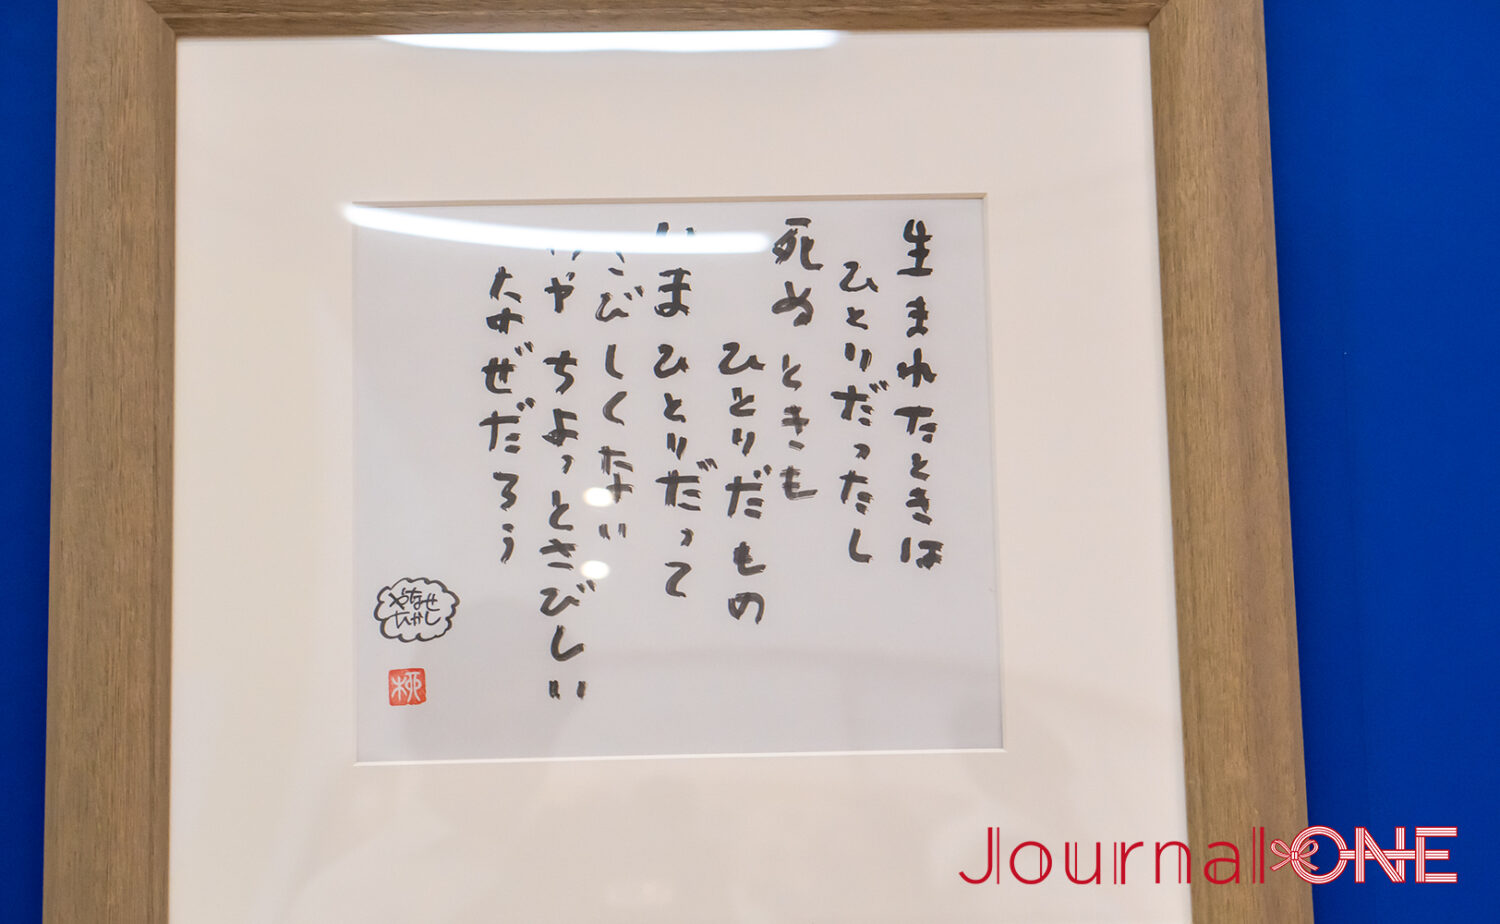 生まれたときは
ひとりだったし
死ぬときも
ひとりだもの
いまひとりだって
さびしくない
いや ちょっとさびしい
なぜだろう
やなせ
たかし
柳
Journal ONE